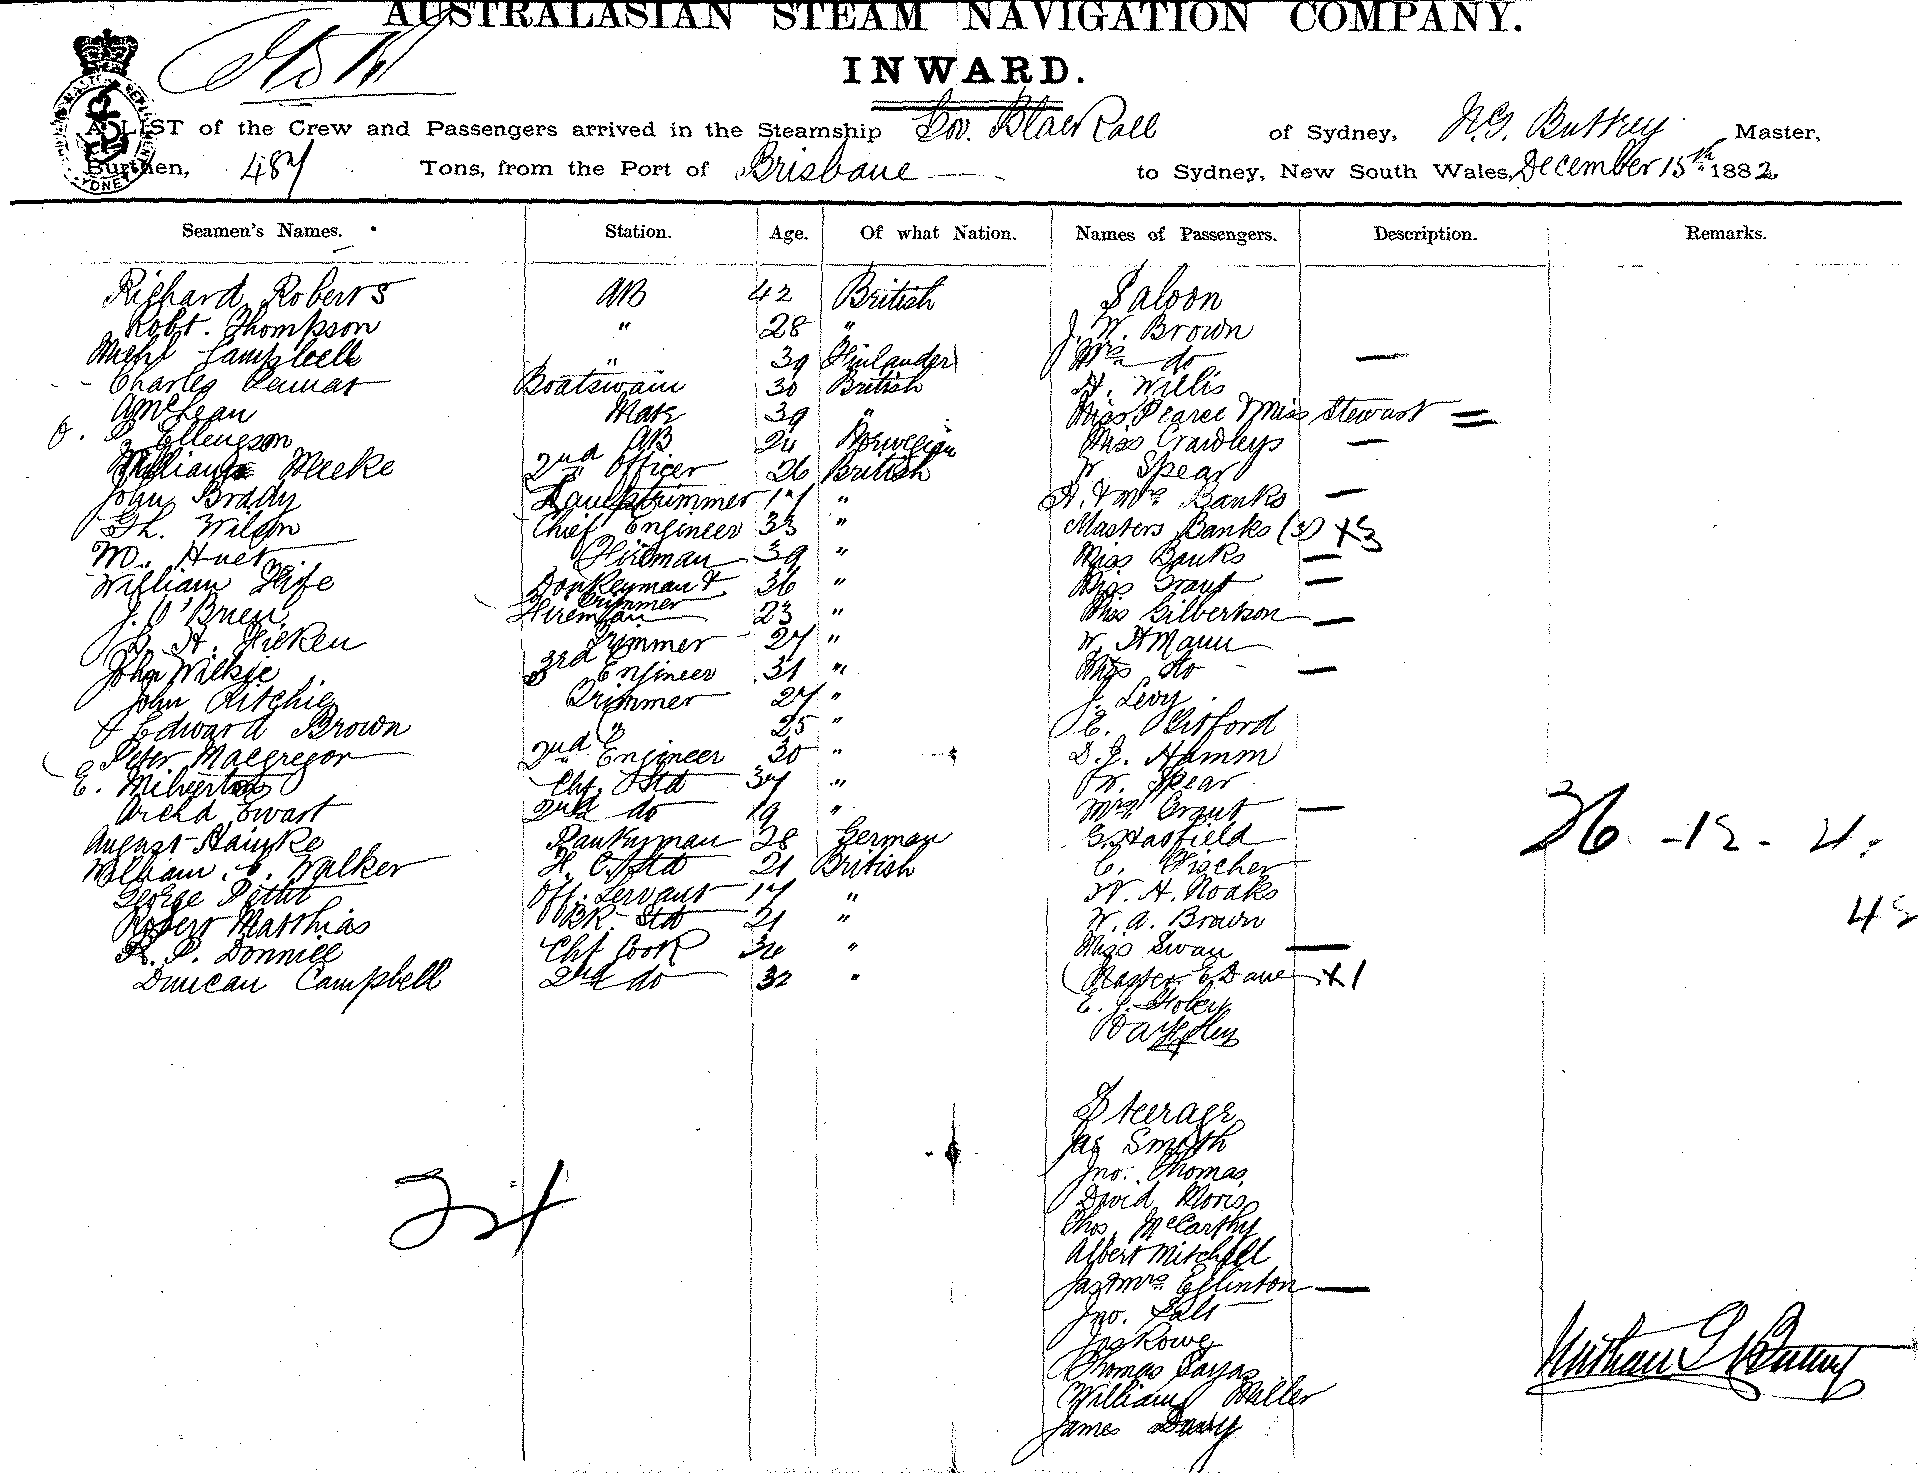 AUSTRALASIAN STEAM NAVIGATION COMPANY.
INWARD.
A LIST of the Crew and Passengers arrived in the Steamship Gov. Blackall of Sydney, N.G. Master,
Burthen, 487 Tons, from the Port of Brisbane to Sydney, New South Wales, December 15th 1882
Seamen's Names. Station. Age. Of what Nation. Names of Passengers. Description. Remarks.
Richard Roberts AB 42 British Saloon
Robt. Thompson " 28 " J. W. Brown
Michl Campbell " 39 Finlander Mrs do —
Charles Boatswain 30 British H. Willis
A McLean Mate 39 " Miss Pearce & Miss Stewart =
P. Ellengson AB 24 Norwegian Miss Crawleys —
William Meeke 2nd Officer 26 British W Spear
John Brady trimmer 17 " A. & Mrs Banks —
Th. Wilson Chief Engineer 33 " Masters Banks (3) x3
W. Huet Fireman 39 " Miss Banks —
William Fife Donkeyman & 36 " Miss Grant —
Trimmer
J. O'Brien Fireman 23 " Miss Gilbertson —
H. Hicken Trimmer 27 " W. H Mann
John Wilkie 3rd Engineer 31 " Mrs do —
John Ritchie Trimmer 27 " J. Levy
Edward Brown " 25 " E. Gifford
Peter Macgregor 2nd Engineer 30 " D. J. Hamm
E. Milverton Chf. Std 37 " W. Spear
Archd Ewart 2nd do 19 " Mrs Grant —
August Hainke 28 German G. Hatfield
William Walker F. C. Std 21 British C. Fischer
George Pettit Off. Servant 17 " W. H. Noaks
Robert Matthias BK Std 21 " W. A. Brown
R. P. Donnill Chf Cook 36 " Miss Swan —
Duncan Campbell 2nd do 32 " Master E Dane x1
E. J.
Steerage
Jas Smyth
Jno. Thomas
David Moris
Thos. McCarthy
Albert Mitchell
Jas & Mrs Eglinton —
Jno. Salt
Jas Rowe
Thomas
William Miller
James
36 - 12 -